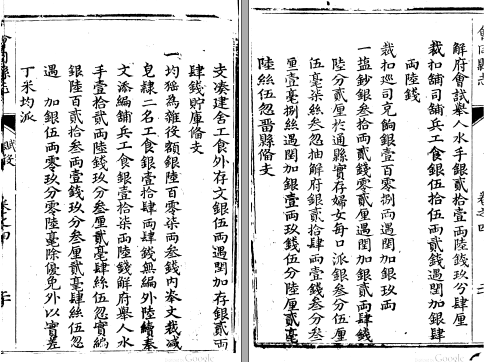 解府會試舉人水手銀貳拾壹兩陸錢玖分肆厘
裁扣舖司舖兵工食銀伍拾伍兩貳錢遇閏加銀肆
兩陸錢
裁扣巡司克餉銀壹百零捌兩遇閏加銀玖兩
一塩鈔銀叁拾兩貳錢零貳厘遇閏加銀貳兩肆錢
陸分貳厘於通縣實存婦女每口派銀叁分伍厘
伍毫柒絲叁忽抽解府銀貳拾肆兩壹錢叁分叁
厘壹毫捌絲遇閏加銀壹兩玖錢伍分陸厘貳毫
陸絲伍忽晋縣俻支
支湊建舍工食外存文銀伍兩遇閏加存銀貳兩
肆錢貯庫俻支
一均徭為雜役額銀陸百零柒兩叁錢內奉文裁減
皂隷二名工食銀壹拾肆兩肆錢無編外陸續奉
文添編舖兵工食銀壹拾柒兩陸錢解府舉人水
手壹拾貳兩陸錢玖分叁厘貳毫肆絲伍忽實編
銀陸百貳拾叁兩壹錢玖分叁厘貳毫肆絲伍忽
遇 加銀伍兩零玖分零陸毫除優免外以實差
丁米均派
賦役
卷之四
Google